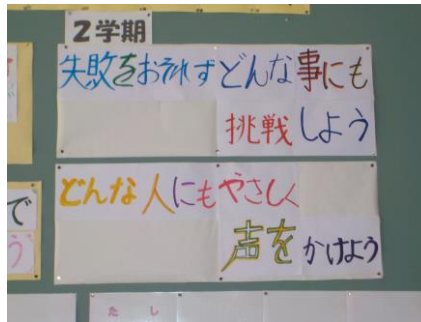 2学期
失敗をおそれずどんな事にも
挑戦しよう
どんな人にもやさしく
声をかけよう
で
う
たし